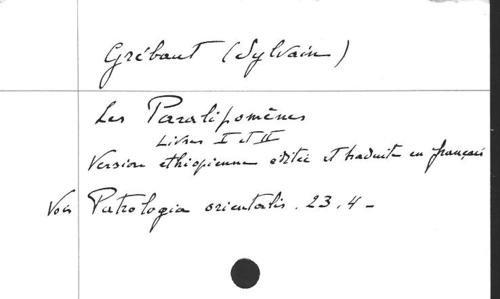 Grébaut (Sylvain)
Les Paralipomènes
Livres I et II
Version éthiopienne éditée et traduite en français
Voir Patrologia orientalis. 23, 4 -